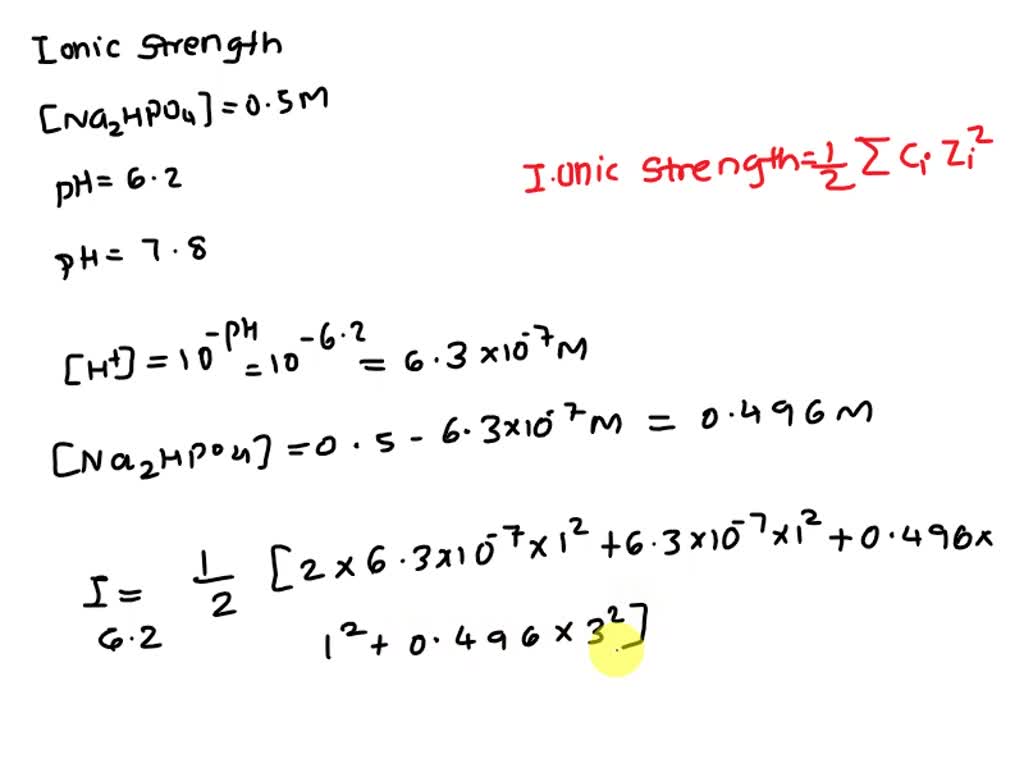 Ionic Strength
[Na₂HPO₄] = 0.5M
pH = 6.2
I.onic Strength = 1/2 Σ Cᵢ. Zᵢ²
pH = 7.8
[H⁺] = 10^-PH = 10^-6.2 = 6.3 × 10^-7 M
[Na₂HPO₄] = 0.5 - 6.3×10^-7 M = 0.496M
I = 1/2 [2 × 6.3×10^-7 × 1² + 6.3×10^-7 × 1² + 0.496×
6.2 1² + 0.496 × 3²]